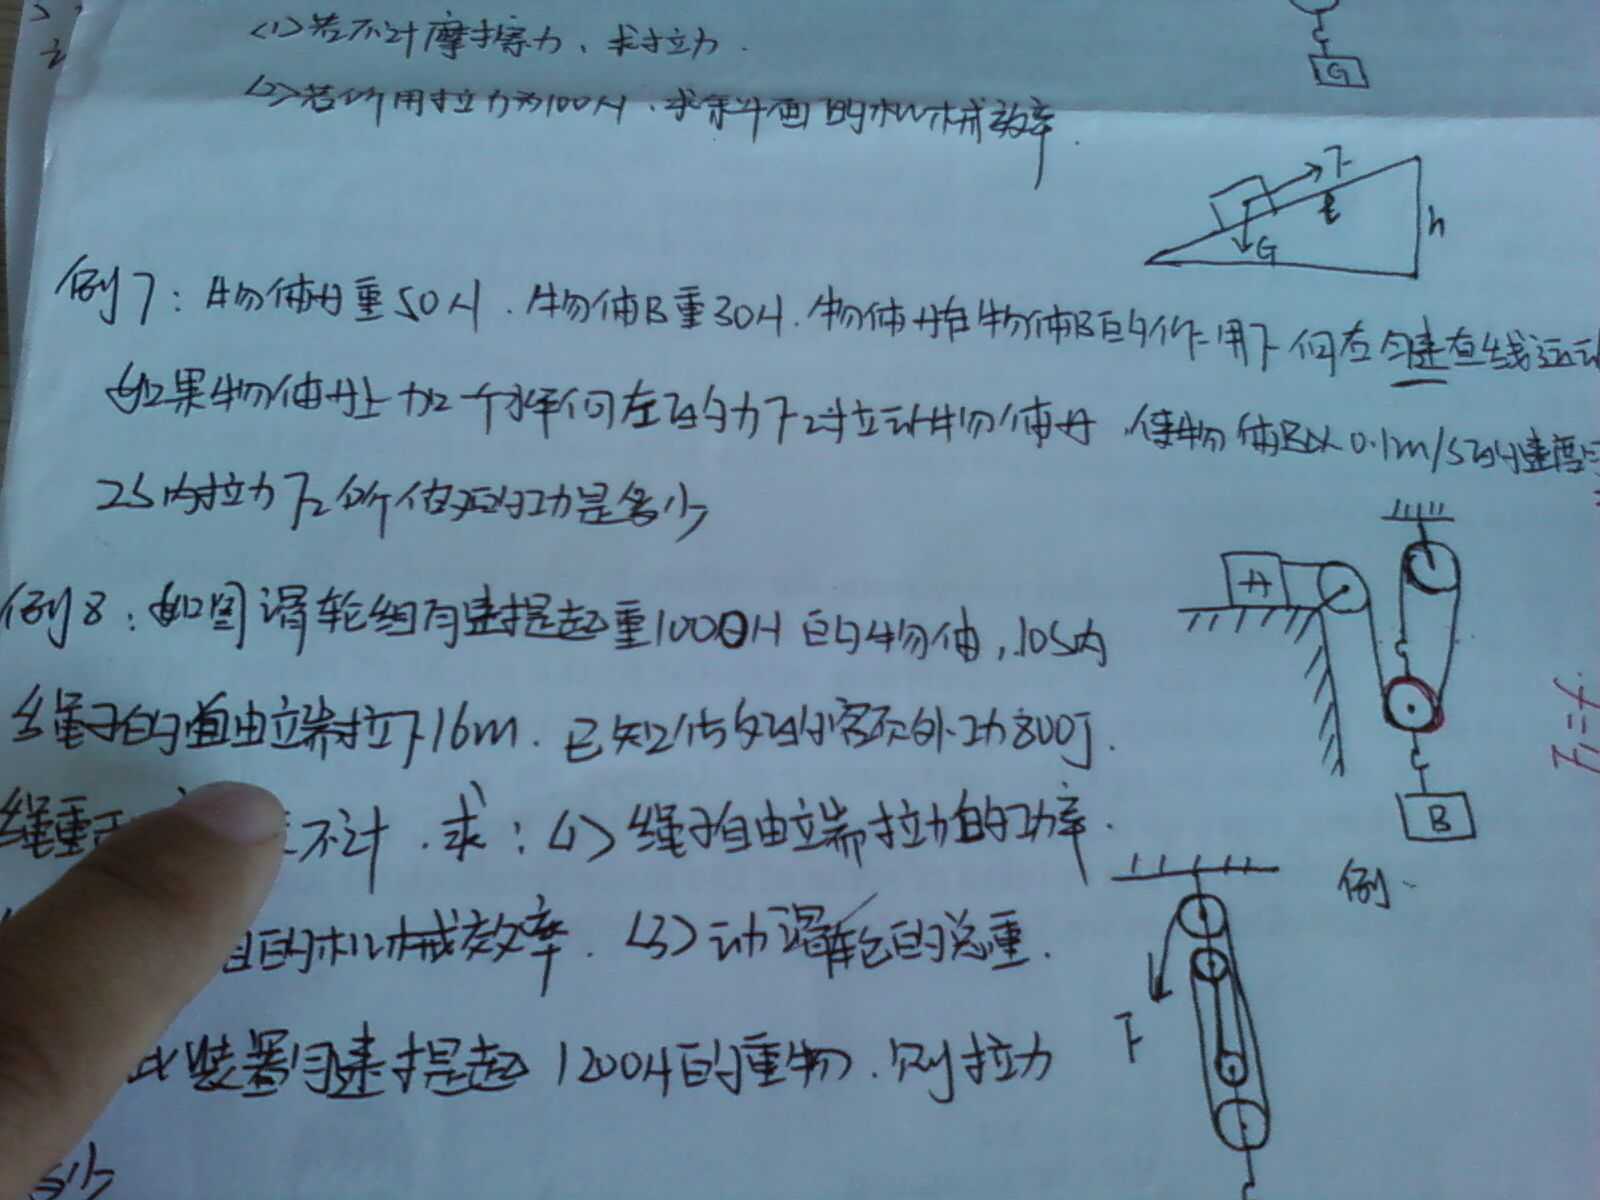 <1>若不计摩擦力、求拉力.
<2>若所用拉力为100N.求斜面的机械效率.
G
F
G
h
例7:物体A重50N.物体B重30N.物体A在物体B的作用下向右匀速直线运动
如果物体A上加一个水平向左的力F2拉动物体A,使物体B以0.1m/s的速度
2s内拉力F2所做的功是多少
A
B
例8:如图滑轮组匀速提起重1000N的物体,10s内
绳子的自由端拉下16m.已知做的额外功800J.
绳重 不计.求:<1>绳子自由端拉力的功率.
的机械效率.<3>动滑轮的总重.
装置匀速提起1200N的重物.则拉力
多少
例
F